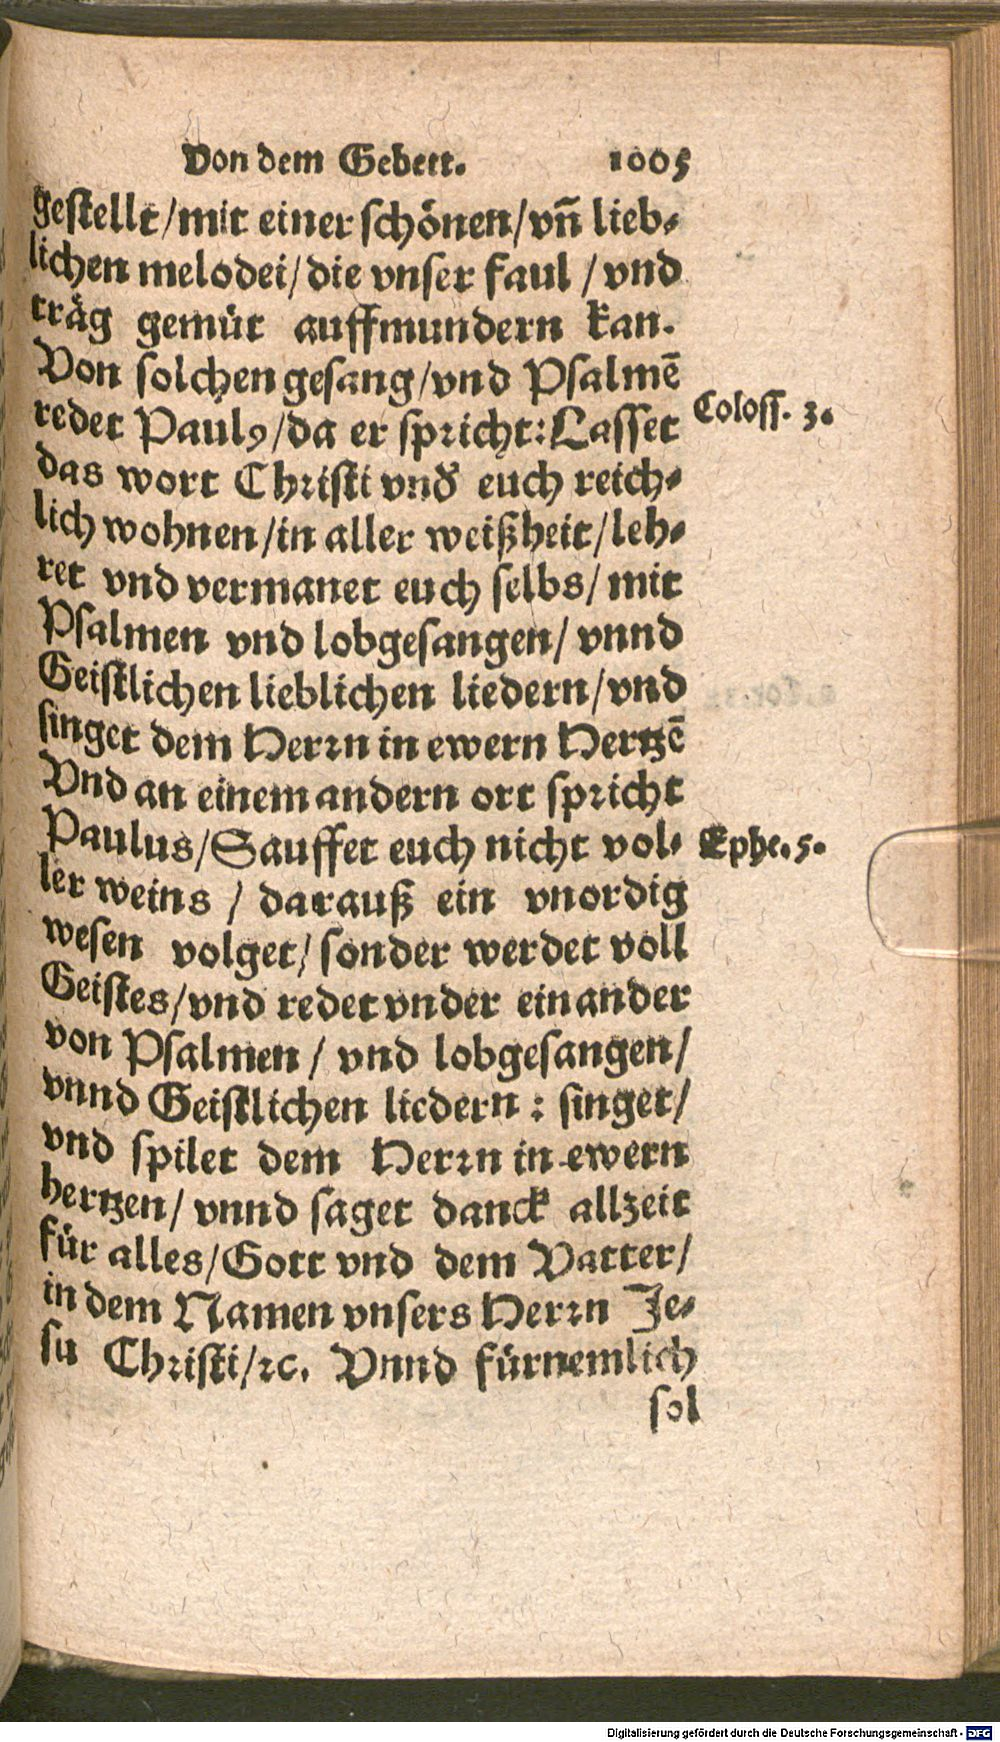 Von dem Gebett. 1005
gestellt/mit einer schönen/vñ lieb⸗
lichen melodei/die vnser faul /vnd
träg gemüt auffmundern kan.
Von solchen gesang/vnd Psalmē
redet Paulꝰ/da er spricht: Lasset
Coloss. 3.
das wort Christi vnd̕ euch reich⸗
lich wohnen/in aller weißheit/leh⸗
ret vnd vermanet euch selbs/ mit
Psalmen vnd lobgesangen/ vnnd
Geistlichen lieblichen liedern/vnd
singet dem Herrn in ewern Hertzē
Vnd an einem andern ort spricht
Paulus/Sauffet euch nicht vol⸗
Ephe. 5.
ler weins / darauß ein vnordig
wesen volget/ sonder werdet voll
Geistes/vnd redet vnder einander
von Psalmen / vnd lobgesangen/
vnnd Geistlichen liedern : singet/
vnd spilet dem Herrn in ewern
hertzen/ vnnd saget danck allzeit
für alles/Gott vnd dem Vatter/
in dem Namen vnsers Herrn Je⸗
su Christi/ꝛc. Vnnd fürnemlich
sol
Digitalisierung gefördert durch die Deutsche Forschungsgemeinschaft - DFG